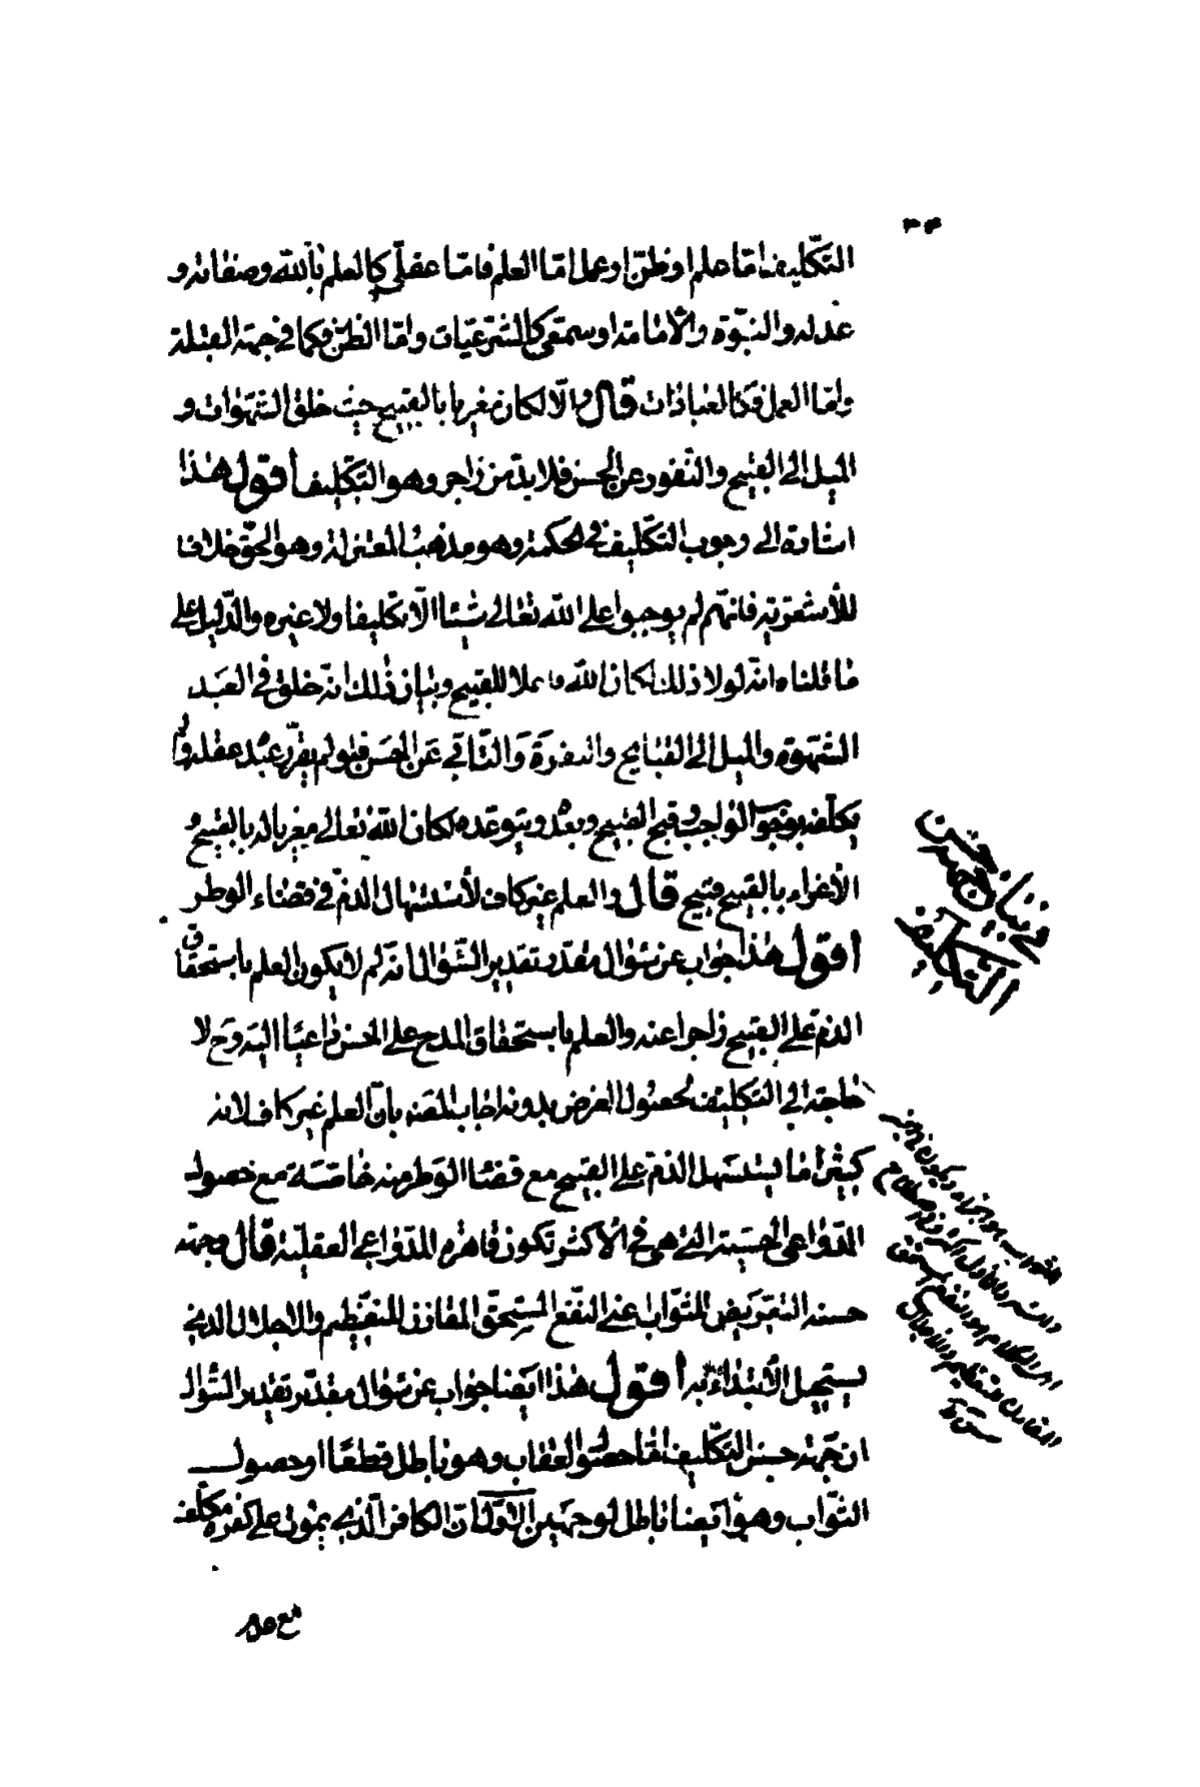 ٣٤
التكليف اما علم او ظن او عمل اما العلم فاما عقلى كالعلم بالله وصفاته و
عدله والنبوة والامامة او سمعى كالشرعيات واما الظن فكما فى جهة القبلة
واما العمل فكالعبادات قال والا لكان مغريا بالقبيح حيث خلق الشهوات و
الميل الى القبيح والنفور عن الحسن فلا بد من زاجر وهو التكليف أقول هذا
اشارة الى وجوب التكليف فى الحكمة وهو مذهب المعتزلة وهو الحق خلافا
للأشعرية فانهم لم يوجبوا على الله تعالى شيئا لا تكليفا ولا غيره والدليل على
ما قلناه انه لولا ذلك لكان الله فاعلا للقبيح وبيان ذلك انه خلق فى العبد
الشهوة والميل الى القبايح والنفرة والتأبى عن الحسن فلو لم يقرر عبده عقله ولم
يكلفه بوجوب الواجب وقبح القبيح ويعده ويتوعده لكان الله تعالى مغريا له بالقبيح و
الأغراء بالقبيح قبيح قال والعلم غير كاف لأستسهال الذم فى قضاء الوطر
أقول هذا جواب عن سؤال مقدر تقدير السؤال انه لم لا يكون العلم باستحقاق
الذم على القبيح زاجرا عنه والعلم باستحقاق المدح على الحسن داعيا اليه وح لا
حاجة الى التكليف لحصول الغرض بدونه اجاب المصنه بأن العلم غير كاف لانه
كثيرا ما يستسهل الذم على القبيح مع قضاء الوطر منه خاصة مع حصول
الدواعى الحسية التى هى فى الأكثر تكون قاهرة للدواعى العقلية قال وجهة
حسنه التعريض للثواب اعنى النفع المستحق المقارن للتعظيم والاجلال الذى
يستحيل الأبتداء به أقول هذا ايضا جواب عن سؤال مقدر تقدير السؤال
ان جهة حسن التكليف اما حصول العقاب وهو باطل قطعا او حصول
الثواب وهو ايضا باطل لوجهين الاول ان الكافر الذى يموت على كفره مكلف
فى بيان جهة حسن
التكليف